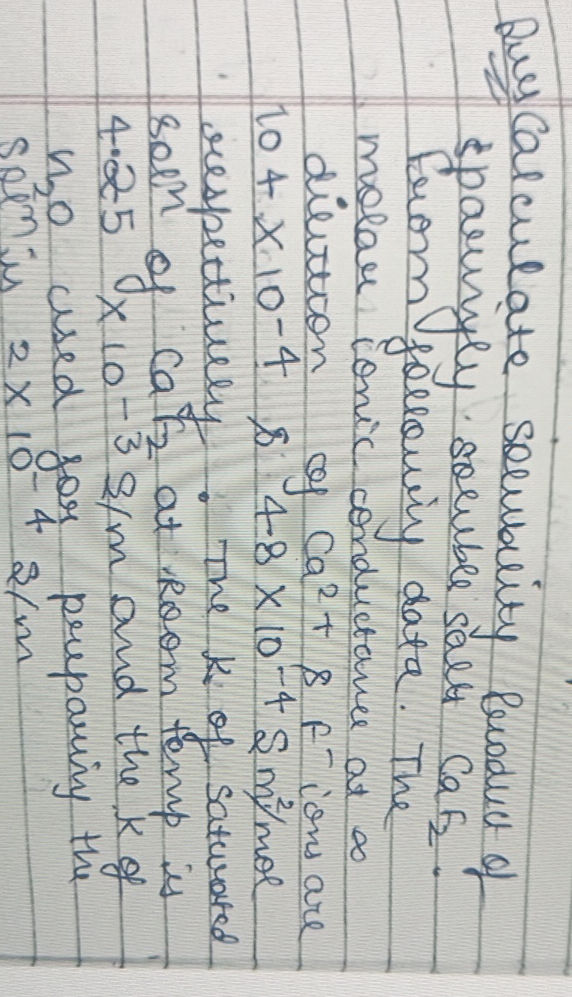 Ques Calculate solubility product of
sparingly soluble salt CaF2.
from following data. The
molar ionic conductance at ∞
dilution of Ca2+ & F- ions are
104 × 10-4 & 48 × 10-4 S m2/mol
respectively. The K of saturated
soln of CaF2 at Room temp is
4.25 × 10-3 S/m and the K of
H2O used for preparing the
soln is 2 × 10-4 S/m